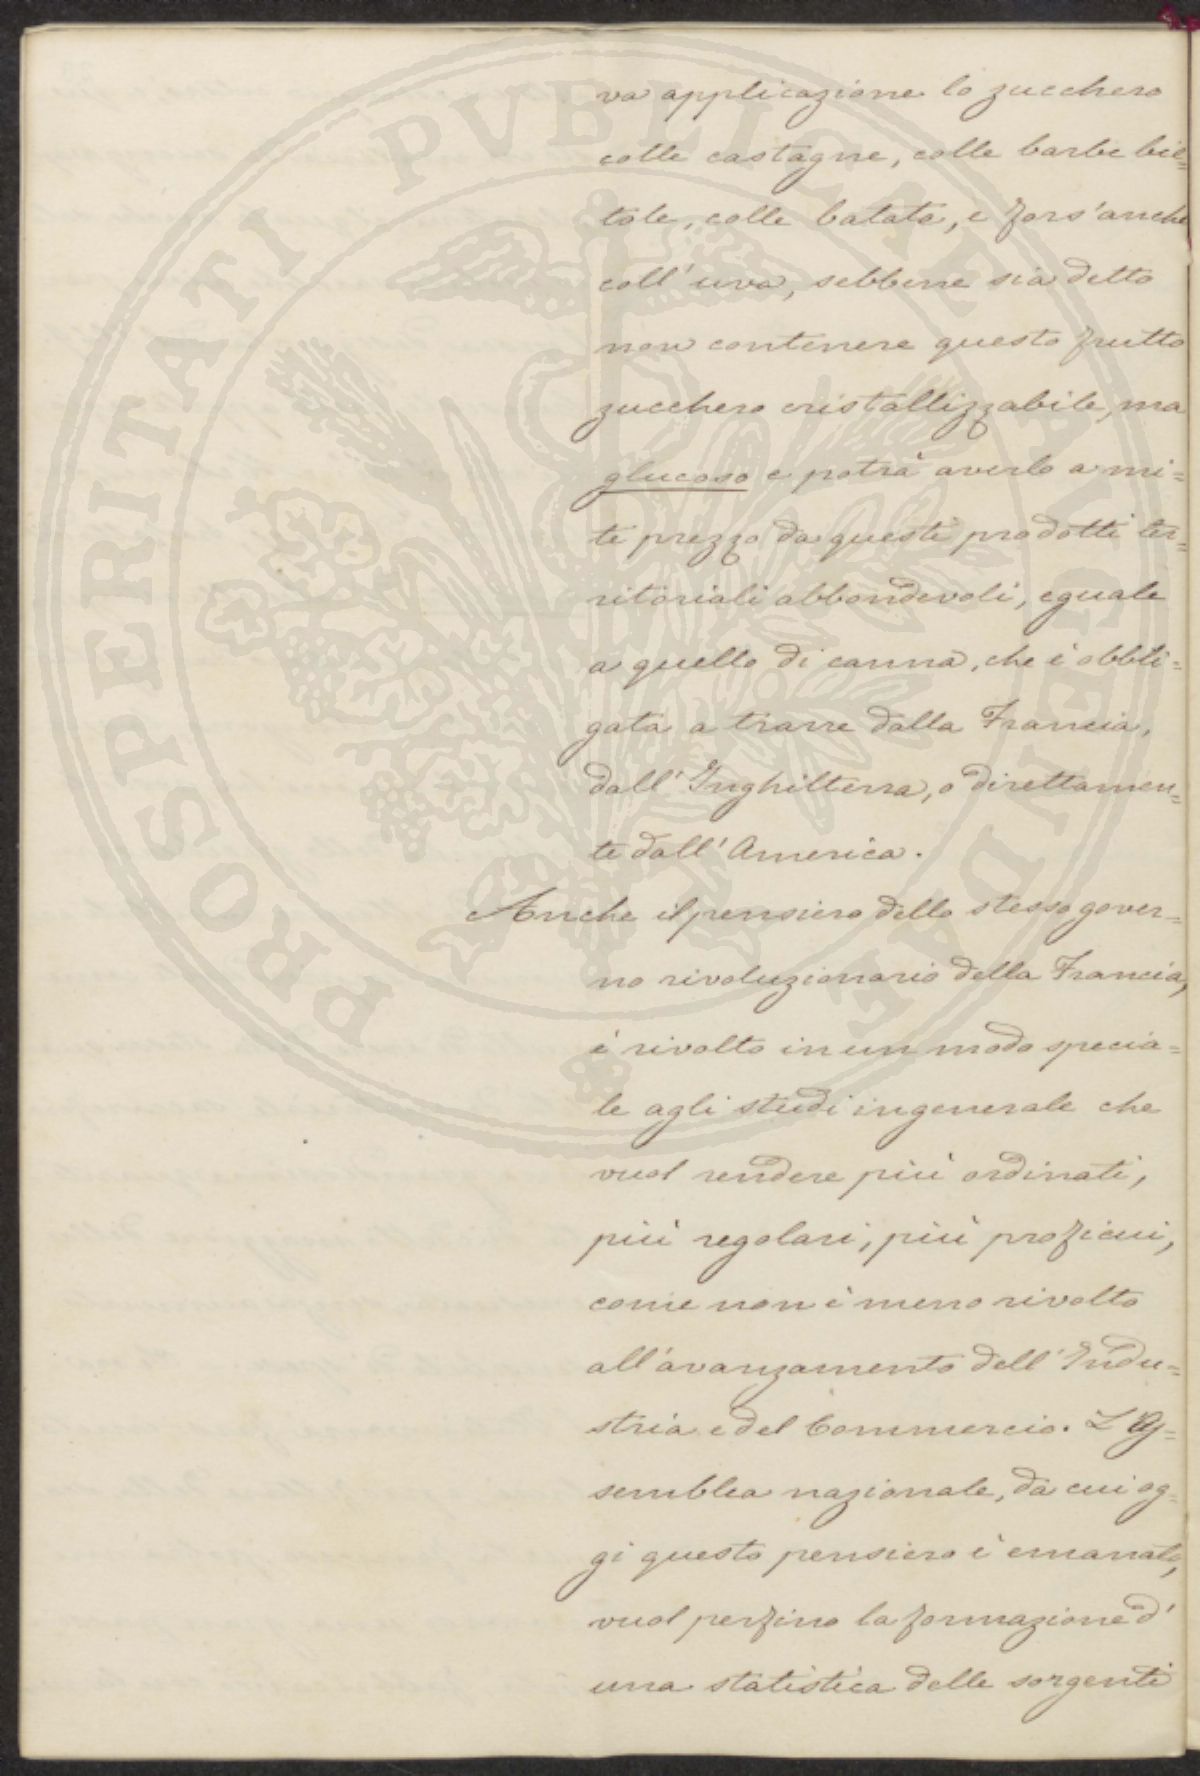 va applicazione lo zucchero
colle castagne, colle barbe bie=
tole, colle batate, e fors'anche
coll'uva, sebbene sia detto
non contenere questo frutto
zucchero cristallizzabile, ma
glucoso e potrà averlo a mi=
te prezzo da questi prodotti ter=
ritoriali abbondevoli, eguale
a quello di canna, che è obbli=
gata a trarre dalla Francia,
dall'Inghilterra, o direttamen=
te dall'America.
Anche il pensiero dello stesso gover=
no rivoluzionario della Francia,
è rivolto in un modo specia=
le agli studi in generale che
vuol rendere più ordinati,
più regolari, più proficui,
come non è meno rivolto
all'avanzamento dell'Indu=
stria e del Commercio. L'As=
semblea nazionale, da cui og=
gi questo pensiero è emanato,
vuol perfino la formazione d'
una statistica delle sorgenti
PROSPERITATI PVBLICAE AVGENDAE